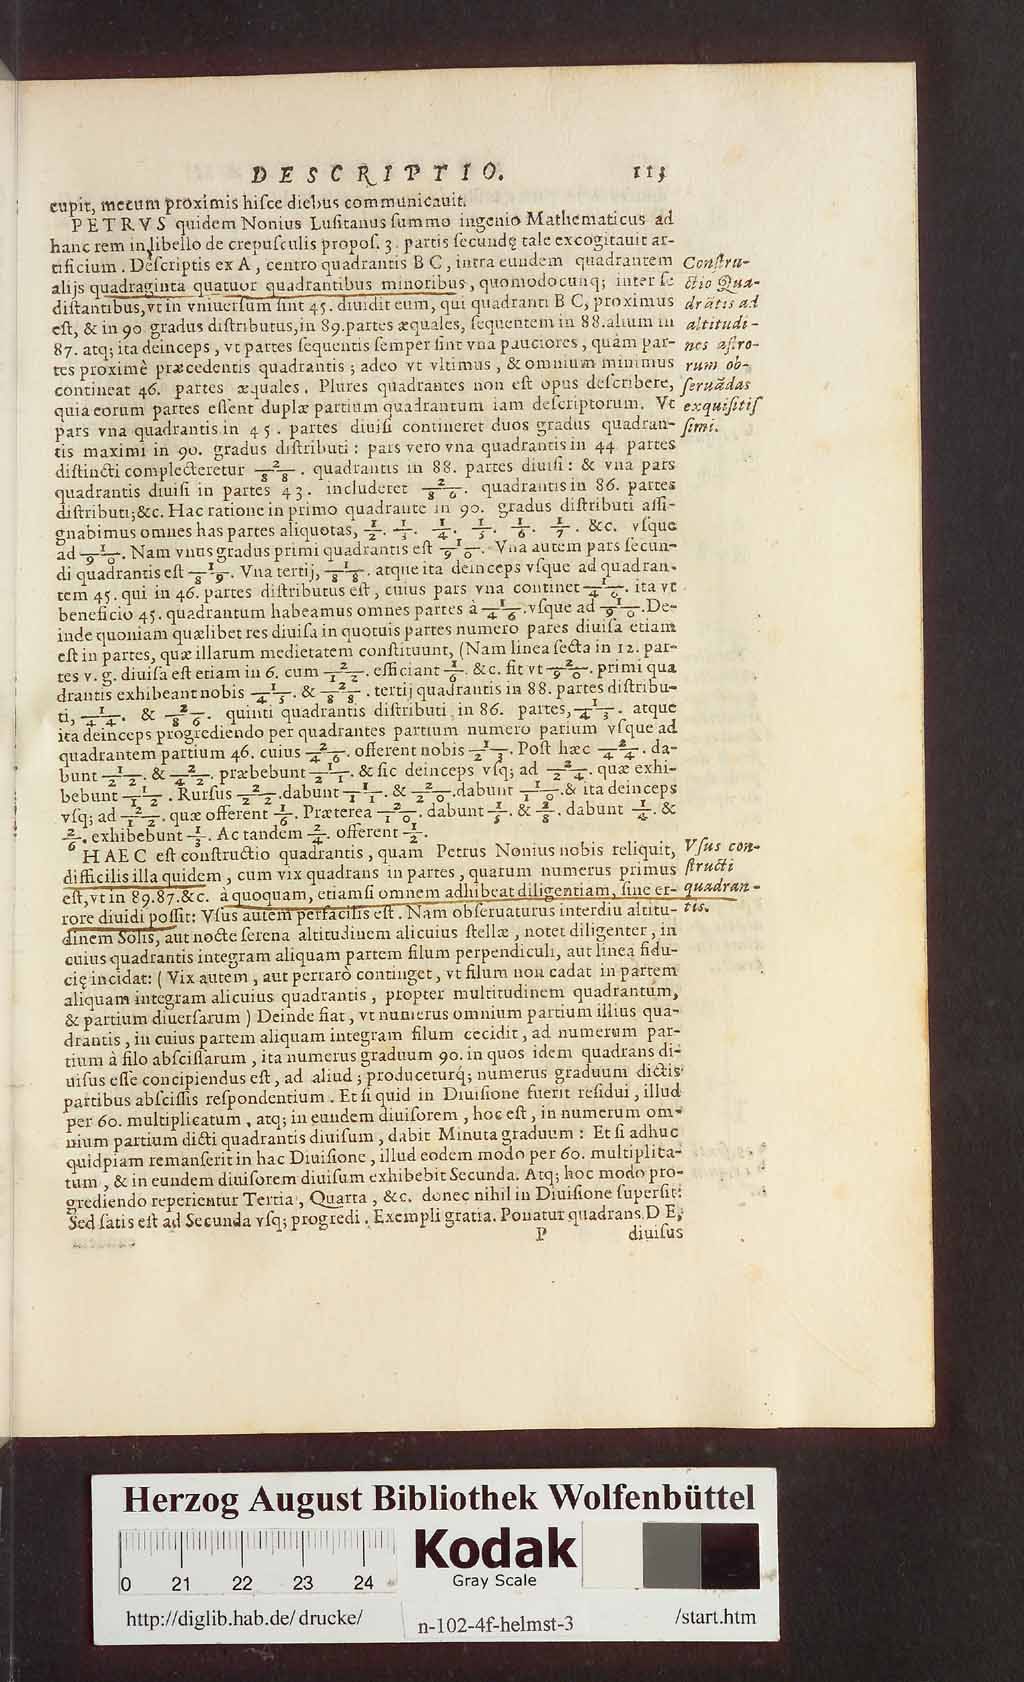 DESCRIPTIO. 113
cupit, mecum proximis hisce diebus communicauit.
PETRVS quidem Nonius Lusitanus summo ingenio Mathematicus ad
hanc rem in libello de crepusculis propos. 3. partis secundę tale excogitauit ar-
tificium. Descriptis ex A, centro quadrantis B C, intra eundem quadrantem
alijs quadraginta quatuor quadrantibus minoribus, quomodocunq; inter se
distantibus, vt in vniuersum sint 45. diuidit eum, qui quadranti B C, proximus
est, & in 90 gradus distributus, in 89. partes æquales, sequentem in 88. alium in
87. atq; ita deinceps, vt partes sequentis semper sint vna pauciores, quàm par-
tes proximè præcedentis quadrantis; adeo vt vltimus, & omnium minimus
contineat 46. partes æquales. Plures quadrantes non est opus describere,
quia eorum partes essent duplæ partium quadrantum iam descriptorum. Vt
pars vna quadrantis in 45. partes diuisi contineret duos gradus quadran-
tis maximi in 90. gradus distributi: pars vero vna quadrantis in 44 partes
distincti complecteretur 2/88. quadrantis in 88. partes diuisi: & vna pars
quadrantis diuisi in partes 43. includeret 2/86. quadrantis in 86. partes
distributi; &c. Hac ratione in primo quadrante in 90. gradus distributi assi-
gnabimus omnes has partes aliquotas, 1/2. 1/3. 1/4. 1/5. 1/6. 1/7. &c. vsque
ad 1/90. Nam vnus gradus primi quadrantis est 1/90. Vna autem pars secun-
di quadrantis est 1/89. Vna tertij, 1/88. atque ita deinceps vsque ad quadran-
tem 45. qui in 46. partes distributus est, cuius pars vna continet 1/46. ita vt
beneficio 45. quadrantum habeamus omnes partes à 1/46. vsque ad 1/90. De-
inde quoniam quælibet res diuisa in quotuis partes numero pares diuisa etiam
est in partes, quæ illarum medietatem constituunt, (Nam linea secta in 12. par-
tes v. g. diuisa est etiam in 6. cum 2/12. efficiant 1/6. &c. fit vt 2/90. primi qua
drantis exhibeant nobis 1/45. & 2/88. tertij quadrantis in 88. partes distribu-
ti, 1/44. & 2/86. quinti quadrantis distributi in 86. partes, 1/43. atque
ita deinceps progrediendo per quadrantes partium numero parium vsque ad
quadrantem partium 46. cuius 2/46. offerent nobis 1/23. Post hæc 2/44. da-
bunt 1/22. & 2/42. præbebunt 1/21. & sic deinceps vsq; ad 2/24. quæ exhi-
bebunt 1/12. Rursus 2/22. dabunt 1/11. & 2/20. dabunt 1/10. & ita deinceps
vsq; ad 2/12. quæ offerent 1/6. Præterea 2/10. dabunt 1/5. & 2/8. dabunt 1/4. &
2/6. exhibebunt 1/3. Ac tandem 2/4. offerent 1/2.
HAEC est constructio quadrantis, quam Petrus Nonius nobis reliquit,
difficilis illa quidem, cum vix quadrans in partes, quarum numerus primus
est, vt in 89. 87. &c. à quoquam, etiamsi omnem adhibeat diligentiam, sine er-
rore diuidi possit: Vsus autem perfacilis est. Nam obseruaturus interdiu altitu-
dinem Solis, aut nocte serena altitudinem alicuius stellæ, notet diligenter, in
cuius quadrantis integram aliquam partem filum perpendiculi, aut linea fidu-
cię incidat: (Vix autem, aut perrarò continget, vt filum non cadat in partem
aliquam integram alicuius quadrantis, propter multitudinem quadrantum,
& partium diuersarum) Deinde fiat, vt numerus omnium partium illius qua-
drantis, in cuius partem aliquam integram filum cecidit, ad numerum par-
tium à filo abscissarum, ita numerus graduum 90. in quos idem quadrans di-
uisus esse concipiendus est, ad aliud; produceturq́; numerus graduum dictis
partibus abscissis respondentium. Et si quid in Diuisione fuerit residui, illud
per 60. multiplicatum, atq; in eundem diuisorem, hoc est, in numerum om-
nium partium dicti quadrantis diuisum, dabit Minuta graduum: Et si adhuc
quidpiam remanserit in hac Diuisione, illud eodem modo per 60. multiplica-
tum, & in eundem diuisorem diuisum exhibebit Secunda. Atq; hoc modo pro-
grediendo reperientur Tertia, Quarta, &c. donec nihil in Diuisione supersit:
Sed satis est ad Secunda vsq; progredi. Exempli gratia. Ponatur quadrans D E,
P diuisus
Constru-
ctio Qua-
drãtis ad
altitudi-
nes astro-
rum ob-
seruãdas
exquisitis
simi.
Vsus con-
structi
quadran-
tis.
Herzog August Bibliothek Wolfenbüttel
0 21 22 23 24
Kodak
Gray Scale
http://diglib.hab.de/drucke/ n-102-4f-helmst-3 /start.htm